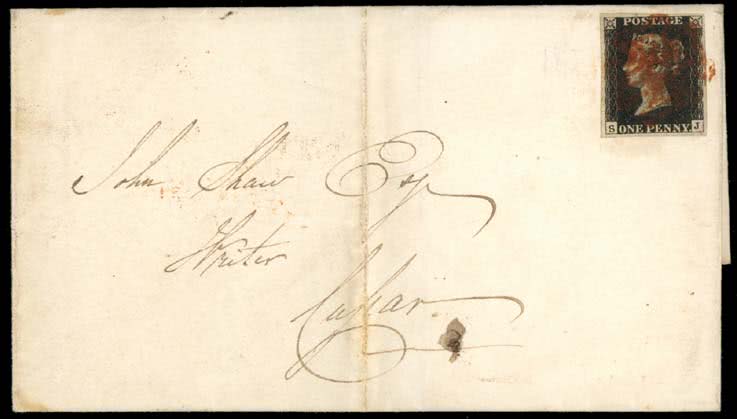 POSTAGE
S J
ONE PENNY
John Shaw Esqr
Writer
Cupar